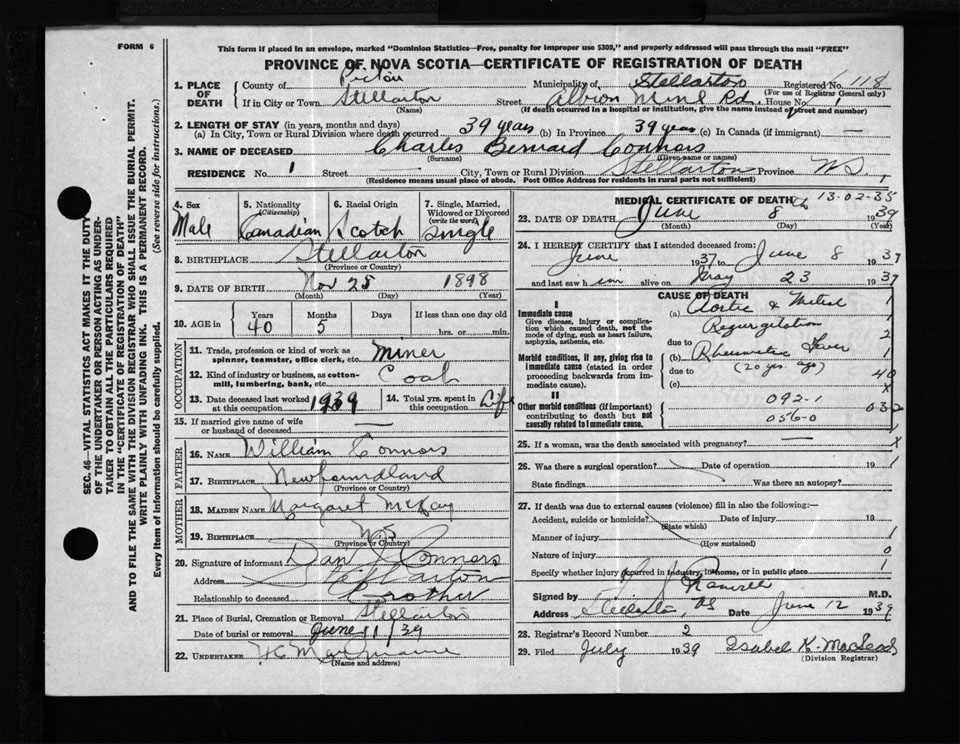 FORM 6
This form if placed in an envelope, marked "Dominion Statistics—Free, penalty for improper use $300," and properly addressed will pass through the mail "FREE"
PROVINCE OF NOVA SCOTIA—CERTIFICATE OF REGISTRATION OF DEATH
1. PLACE OF DEATH County of Pictou Municipality of Stellarton Registered No. 118
(For use of Registrar General only)
If in City or Town Stellarton Street Albion Mine Rd. House No. 1
(Name) (If death occurred in a hospital or institution, give the name instead of street and number)
2. LENGTH OF STAY (in years, months and days)
(a) In City, Town or Rural Division where death occurred 39 years (b) In Province 39 years (c) In Canada (if immigrant) —
3. NAME OF DECEASED Charles Bernard Connors
(Surname) (Given name or names)
RESIDENCE No. 1 Street — City, Town or Rural Division Stellarton Province N S
(Residence means usual place of abode. Post Office Address for residents in rural parts not sufficient)
4. Sex Male
5. Nationality (Citizenship) Canadian
6. Racial Origin Scotch
7. Single, Married, Widowed or Divorced (write the word) Single
8. BIRTHPLACE Stellarton
(Province or Country)
9. DATE OF BIRTH Nov 25 1898
(Month) (Day) (Year)
10. AGE in Years 40 Months 5 Days If less than one day old hrs. or min.
OCCUPATION
11. Trade, profession or kind of work as spinner, teamster, office clerk, etc. Miner
12. Kind of industry or business, as cotton-mill, lumbering, bank, etc. Coal
13. Date deceased last worked at this occupation 1939
14. Total yrs. spent in this occupation Life
15. If married give name of wife or husband of deceased —
FATHER
16. NAME William Connors
17. BIRTHPLACE Newfoundland
(Province or Country)
MOTHER
18. MAIDEN NAME Margaret McKay
19. BIRTHPLACE N.S
(Province or Country)
20. Signature of informant Dan Connors
Address Stellarton
Relationship to deceased Brother
21. Place of Burial, Cremation or Removal Stellarton
Date of burial or removal June 11/39
22. UNDERTAKER
(Name and address)
MEDICAL CERTIFICATE OF DEATH 13-02-35
23. DATE OF DEATH June 8th 1939
(Month) (Day) (Year)
24. I HEREBY CERTIFY that I attended deceased from:
June 1937 to June 8 1939
and last saw him alive on May 23 1939
CAUSE OF DEATH
I
Immediate cause
Give disease, injury or complication which caused death, not the mode of dying, such as heart failure, asphyxia, asthenia, etc.
(a) Aortic & Mitral
Regurgitation
due to
Morbid conditions, if any, giving rise to immediate cause (stated in order proceeding backwards from immediate cause).
(b) Rheumatic Fever
due to (20 yrs. ago)
(c)
II
Other morbid conditions (if important) contributing to death but not causally related to immediate cause.
092-1
056-0
1
2
1
40
x
032
25. If a woman, was the death associated with pregnancy? —
26. Was there a surgical operation? Date of operation 19
State findings Was there an autopsy?
27. If death was due to external causes (violence) fill in also the following:—
Accident, suicide or homicide? Date of injury 19
(State which)
Manner of injury 1
(How sustained)
Nature of injury 0
Specify whether injury occurred in industry, in home, or in public place 1
Signed by M.D.
Address Stellarton, NS Date June 12 1939
28. Registrar's Record Number 2
29. Filed July 1939 Isabel K. MacLeod
(Division Registrar)
SEC. 46—VITAL STATISTICS ACT MAKES IT THE DUTY OF THE UNDERTAKER OR PERSON ACTING AS UNDERTAKER TO OBTAIN ALL THE PARTICULARS REQUIRED IN THE "CERTIFICATE OF REGISTRATION OF DEATH" AND TO FILE THE SAME WITH THE DIVISION REGISTRAR WHO SHALL ISSUE THE BURIAL PERMIT.
WRITE PLAINLY WITH UNFADING INK. THIS IS A PERMANENT RECORD.
Every item of Information should be carefully supplied. (See reverse side for instructions.)